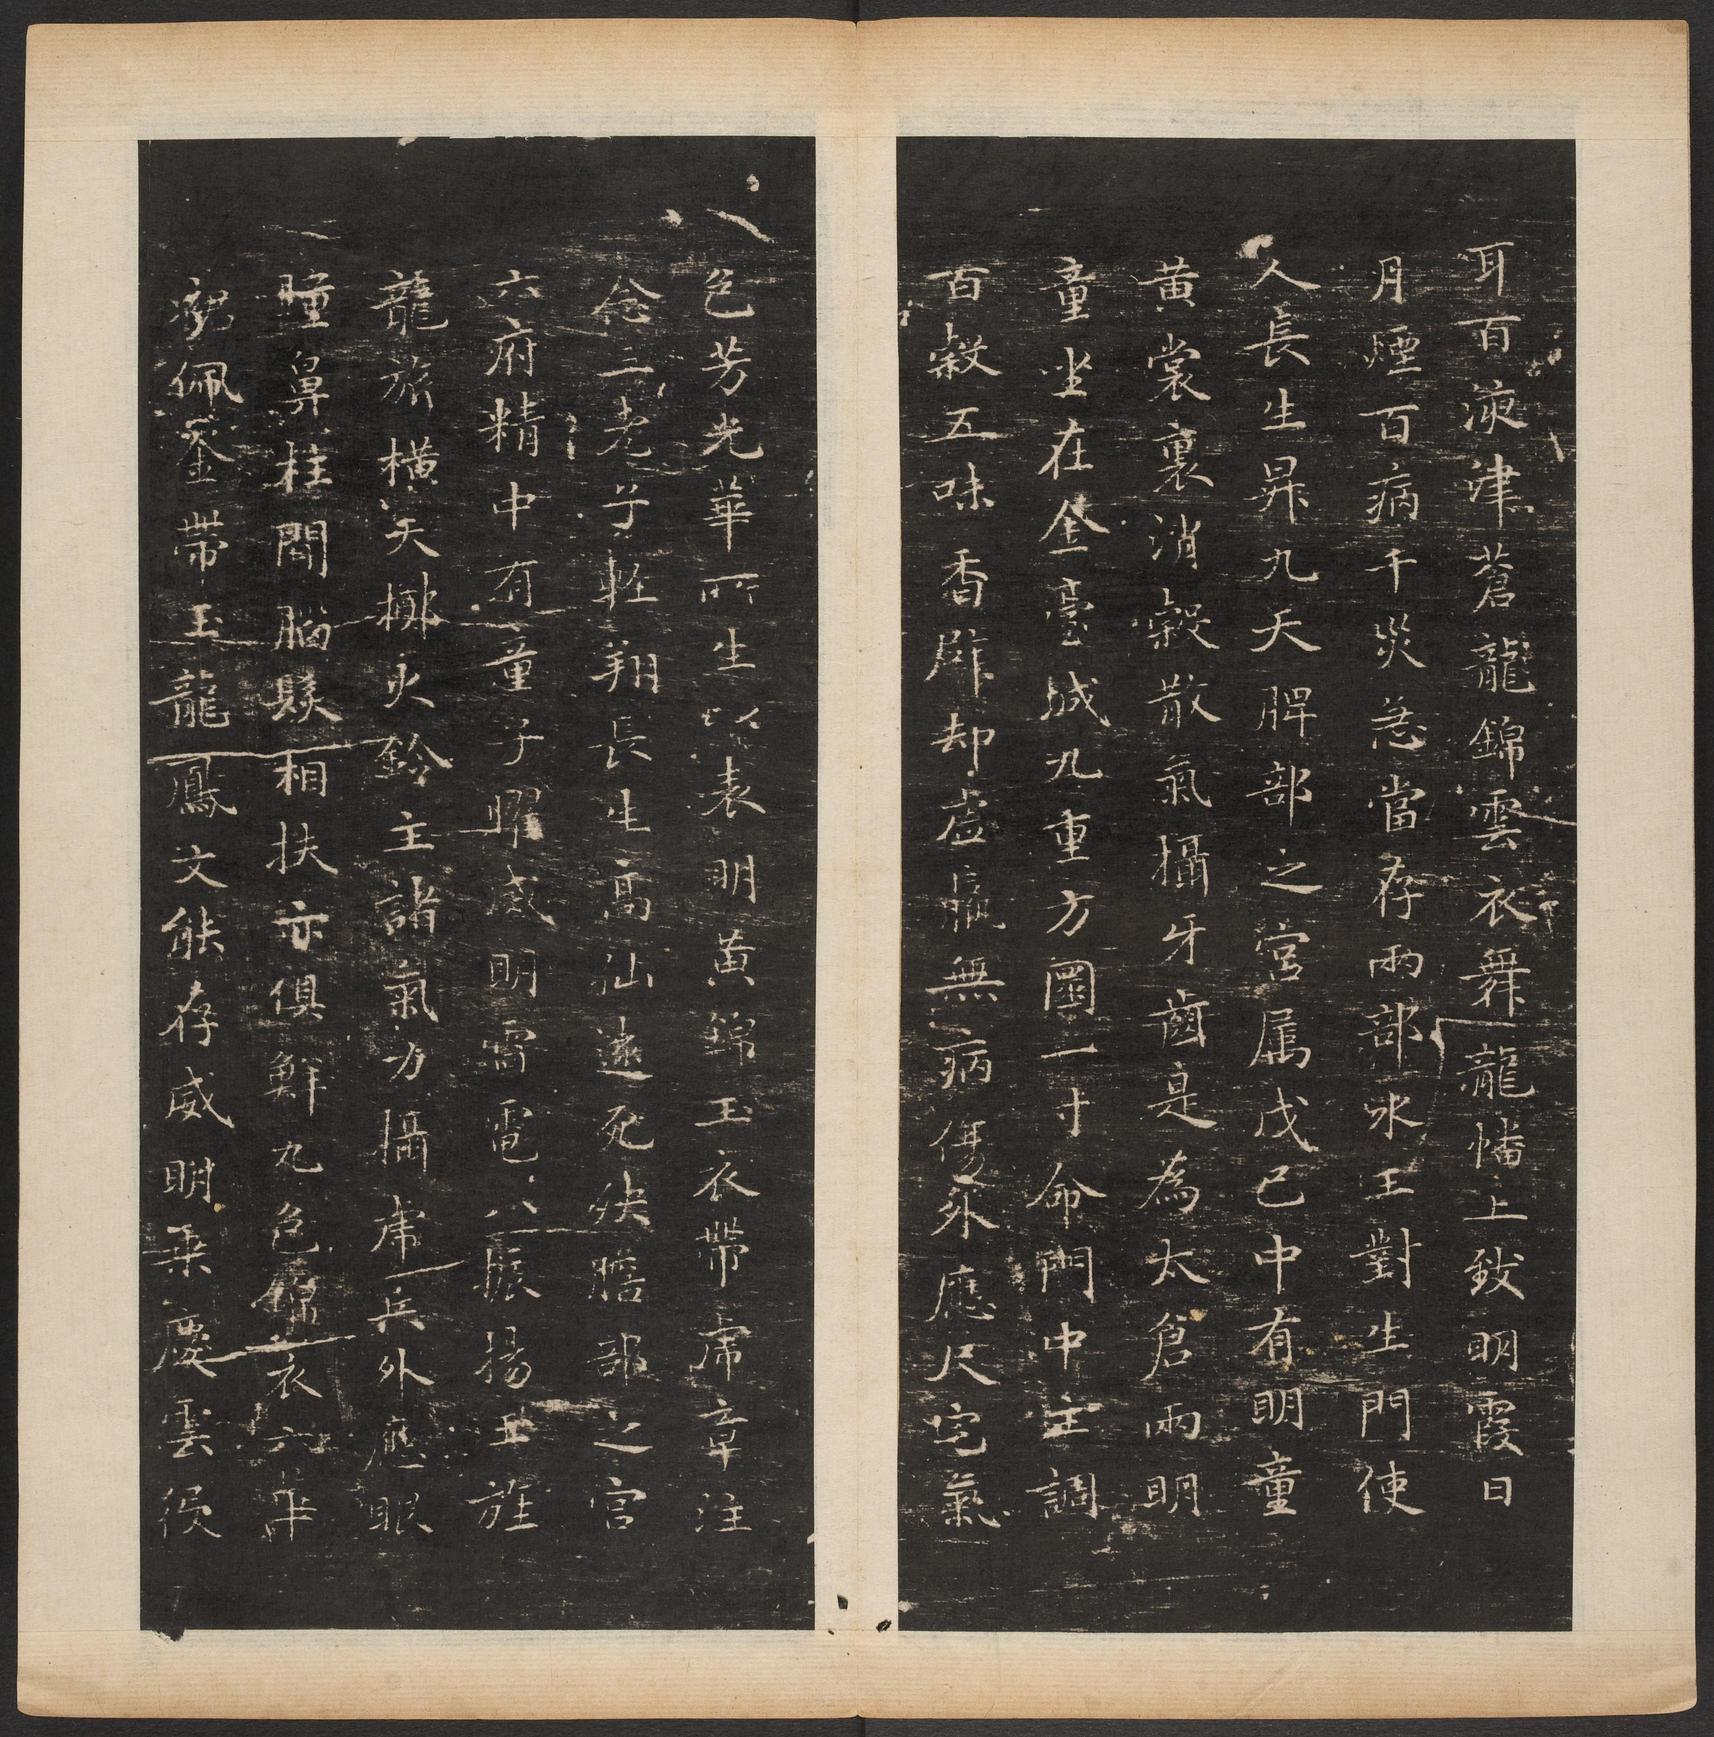 耳百液津蒼龍錦雲衣舞龍幡上致明霞日
月煙百病千災急當存兩部水王對生門使
人長生昇九天脾部之宮屬戊己中有明童
黃裳裏消穀散氣攝牙齒是為太倉兩明
童坐在金臺城九重方圓一寸命門中主調
百穀五味香辟却虛羸無病傷外應尺宅氣
色芳光華所生以表明黃錦玉衣帶虎章注
念三老子輕翔長生高仙遠死殃膽部之宮
六府精中有童子曜威明雷電八振揚玉旌
龍旂橫天擲火鈴主諸氣力攝虎兵外應眼
瞳鼻柱間腦髮相扶亦俱鮮九色錦衣六華
佩金帶玉龍鳳文能存威明乘慶雲役